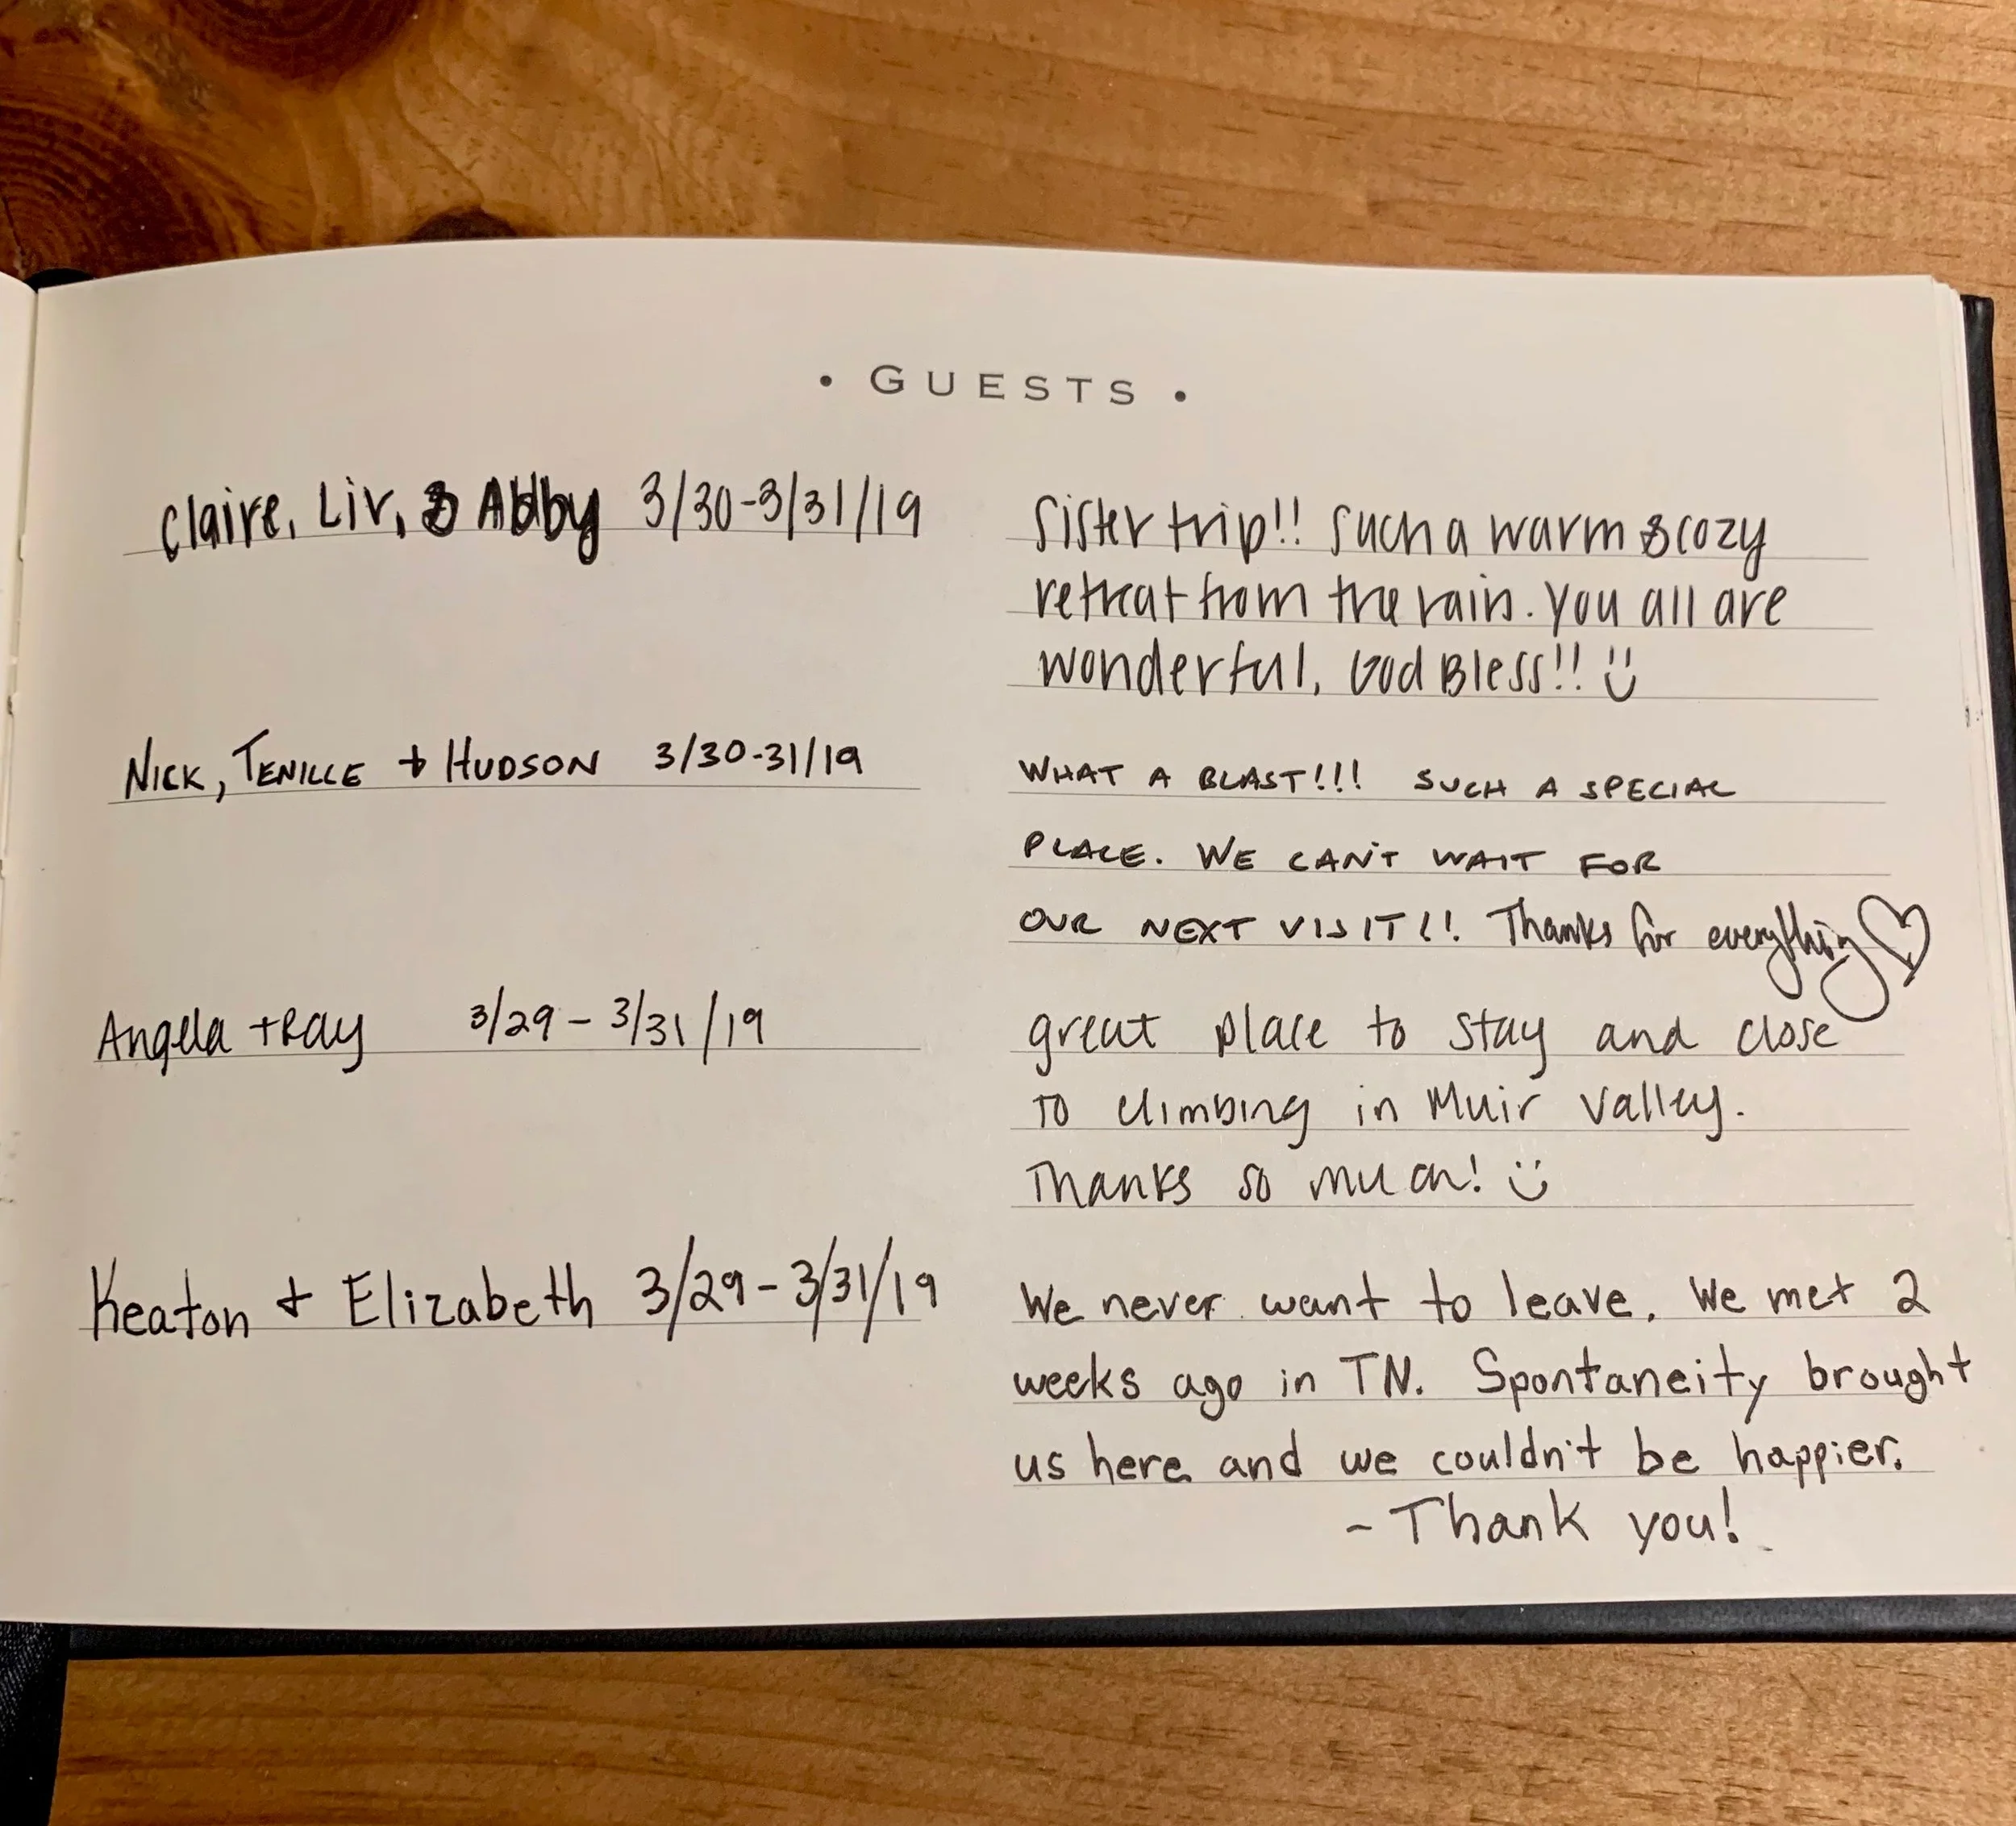 • GUESTS •
Claire, Liv, & Abby 3/30-3/31/19
Sister trip!! Such a warm & cozy
retreat from the rain. You all are
wonderful, God Bless!! :)
NICK, TENILLE + HUDSON 3/30-31/19
WHAT A BLAST!!! SUCH A SPECIAL
PLACE. WE CAN'T WAIT FOR
OUR NEXT VISIT!!! Thanks for everything ♡
Angela + Ray 3/29 - 3/31/19
great place to stay and close
to climbing in Muir Valley.
Thanks so much! :)
Keaton + Elizabeth 3/29 - 3/31/19
We never want to leave. We met 2
weeks ago in TN. Spontaneity brought
us here and we couldn't be happier.
- Thank you!